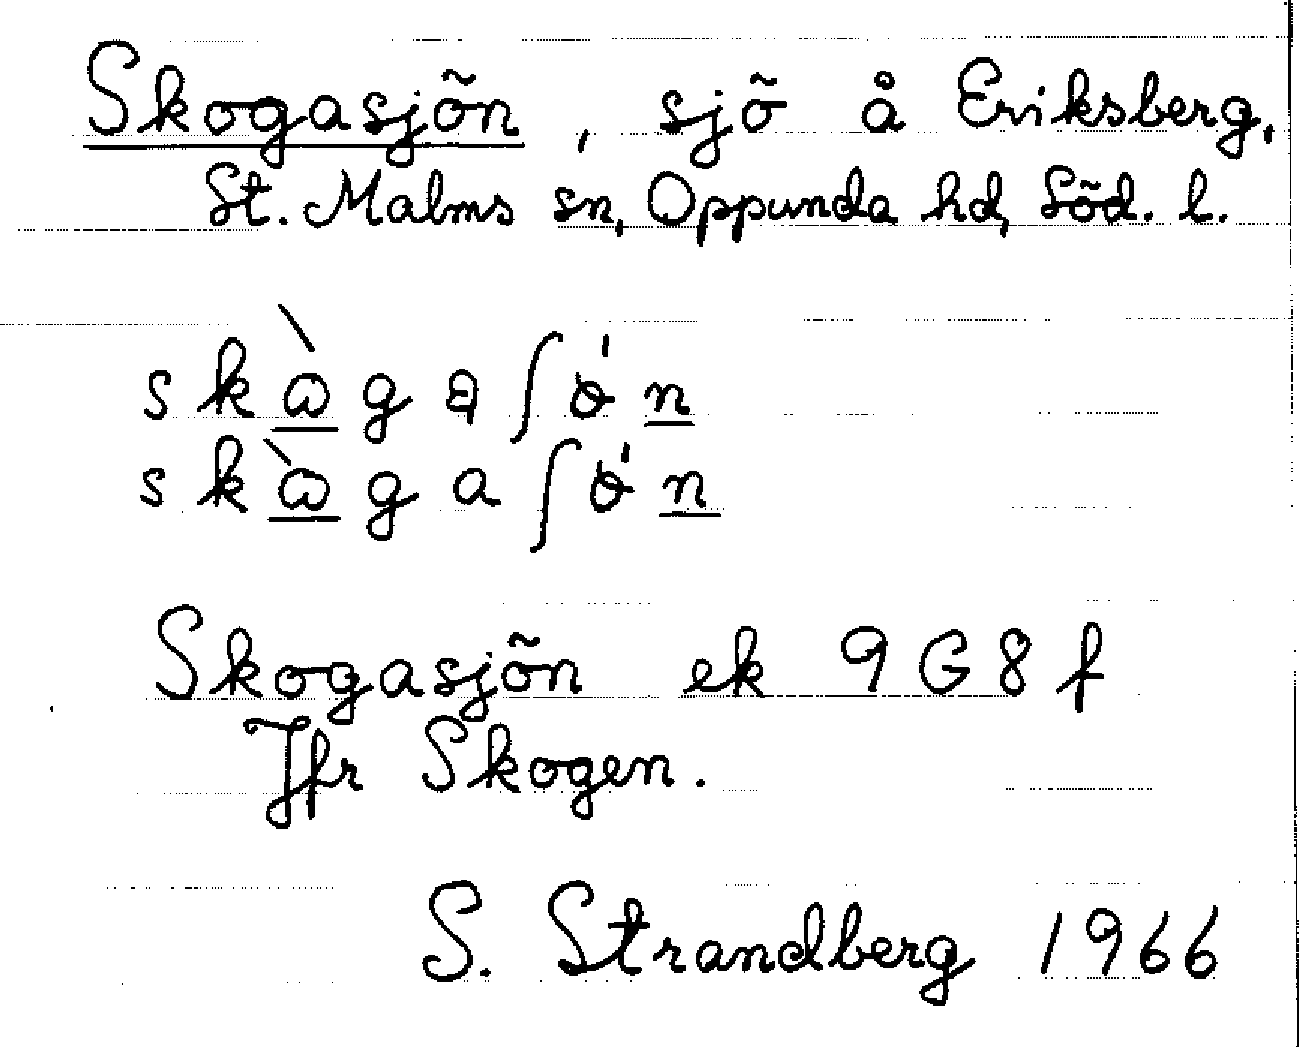 Skogasjõn, sjõ å Eriksberg,
St. Malms sn, Oppunda hd, Sõd. l.
Skogasjõn ek 9G8f
Jfr Skogen.
S. Strandberg 1966